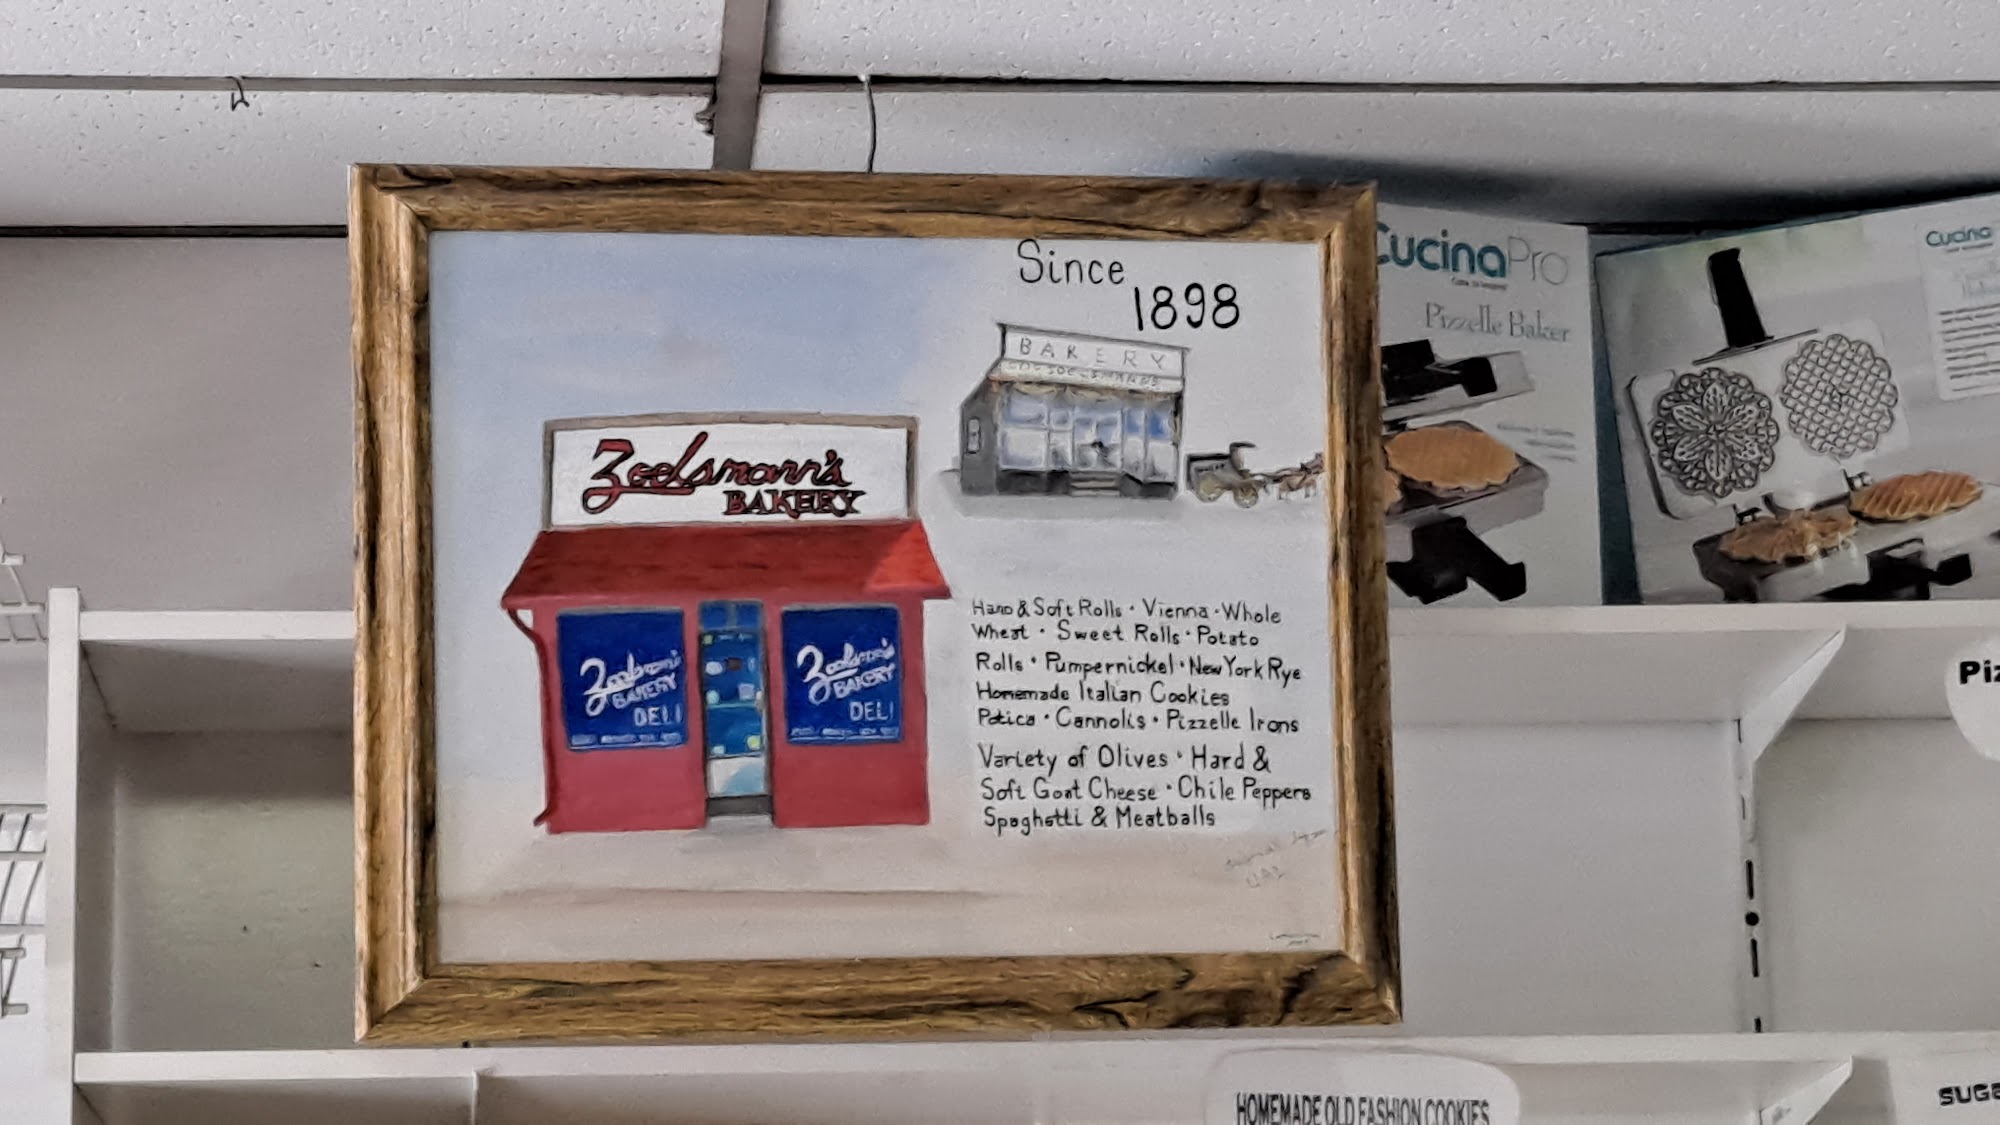 Since
1898
BAKERY
Zoelsmann's
BAKERY
Zoelsmann's
BAKERY
DELI
Zoelsmann's
BAKERY
DELI
Hard & Soft Rolls · Vienna · Whole
Wheat · Sweet Rolls · Potato
Rolls · Pumpernickel · New York Rye
Homemade Italian Cookies
Potica · Cannolis · Pizzelle Irons
Variety of Olives · Hard &
Soft Goat Cheese · Chile Peppers
Spaghetti & Meatballs
CucinaPro
Pizzelle Baker
Cucina
Piz
HOMEMADE OLD FASHION COOKIES
SUGA